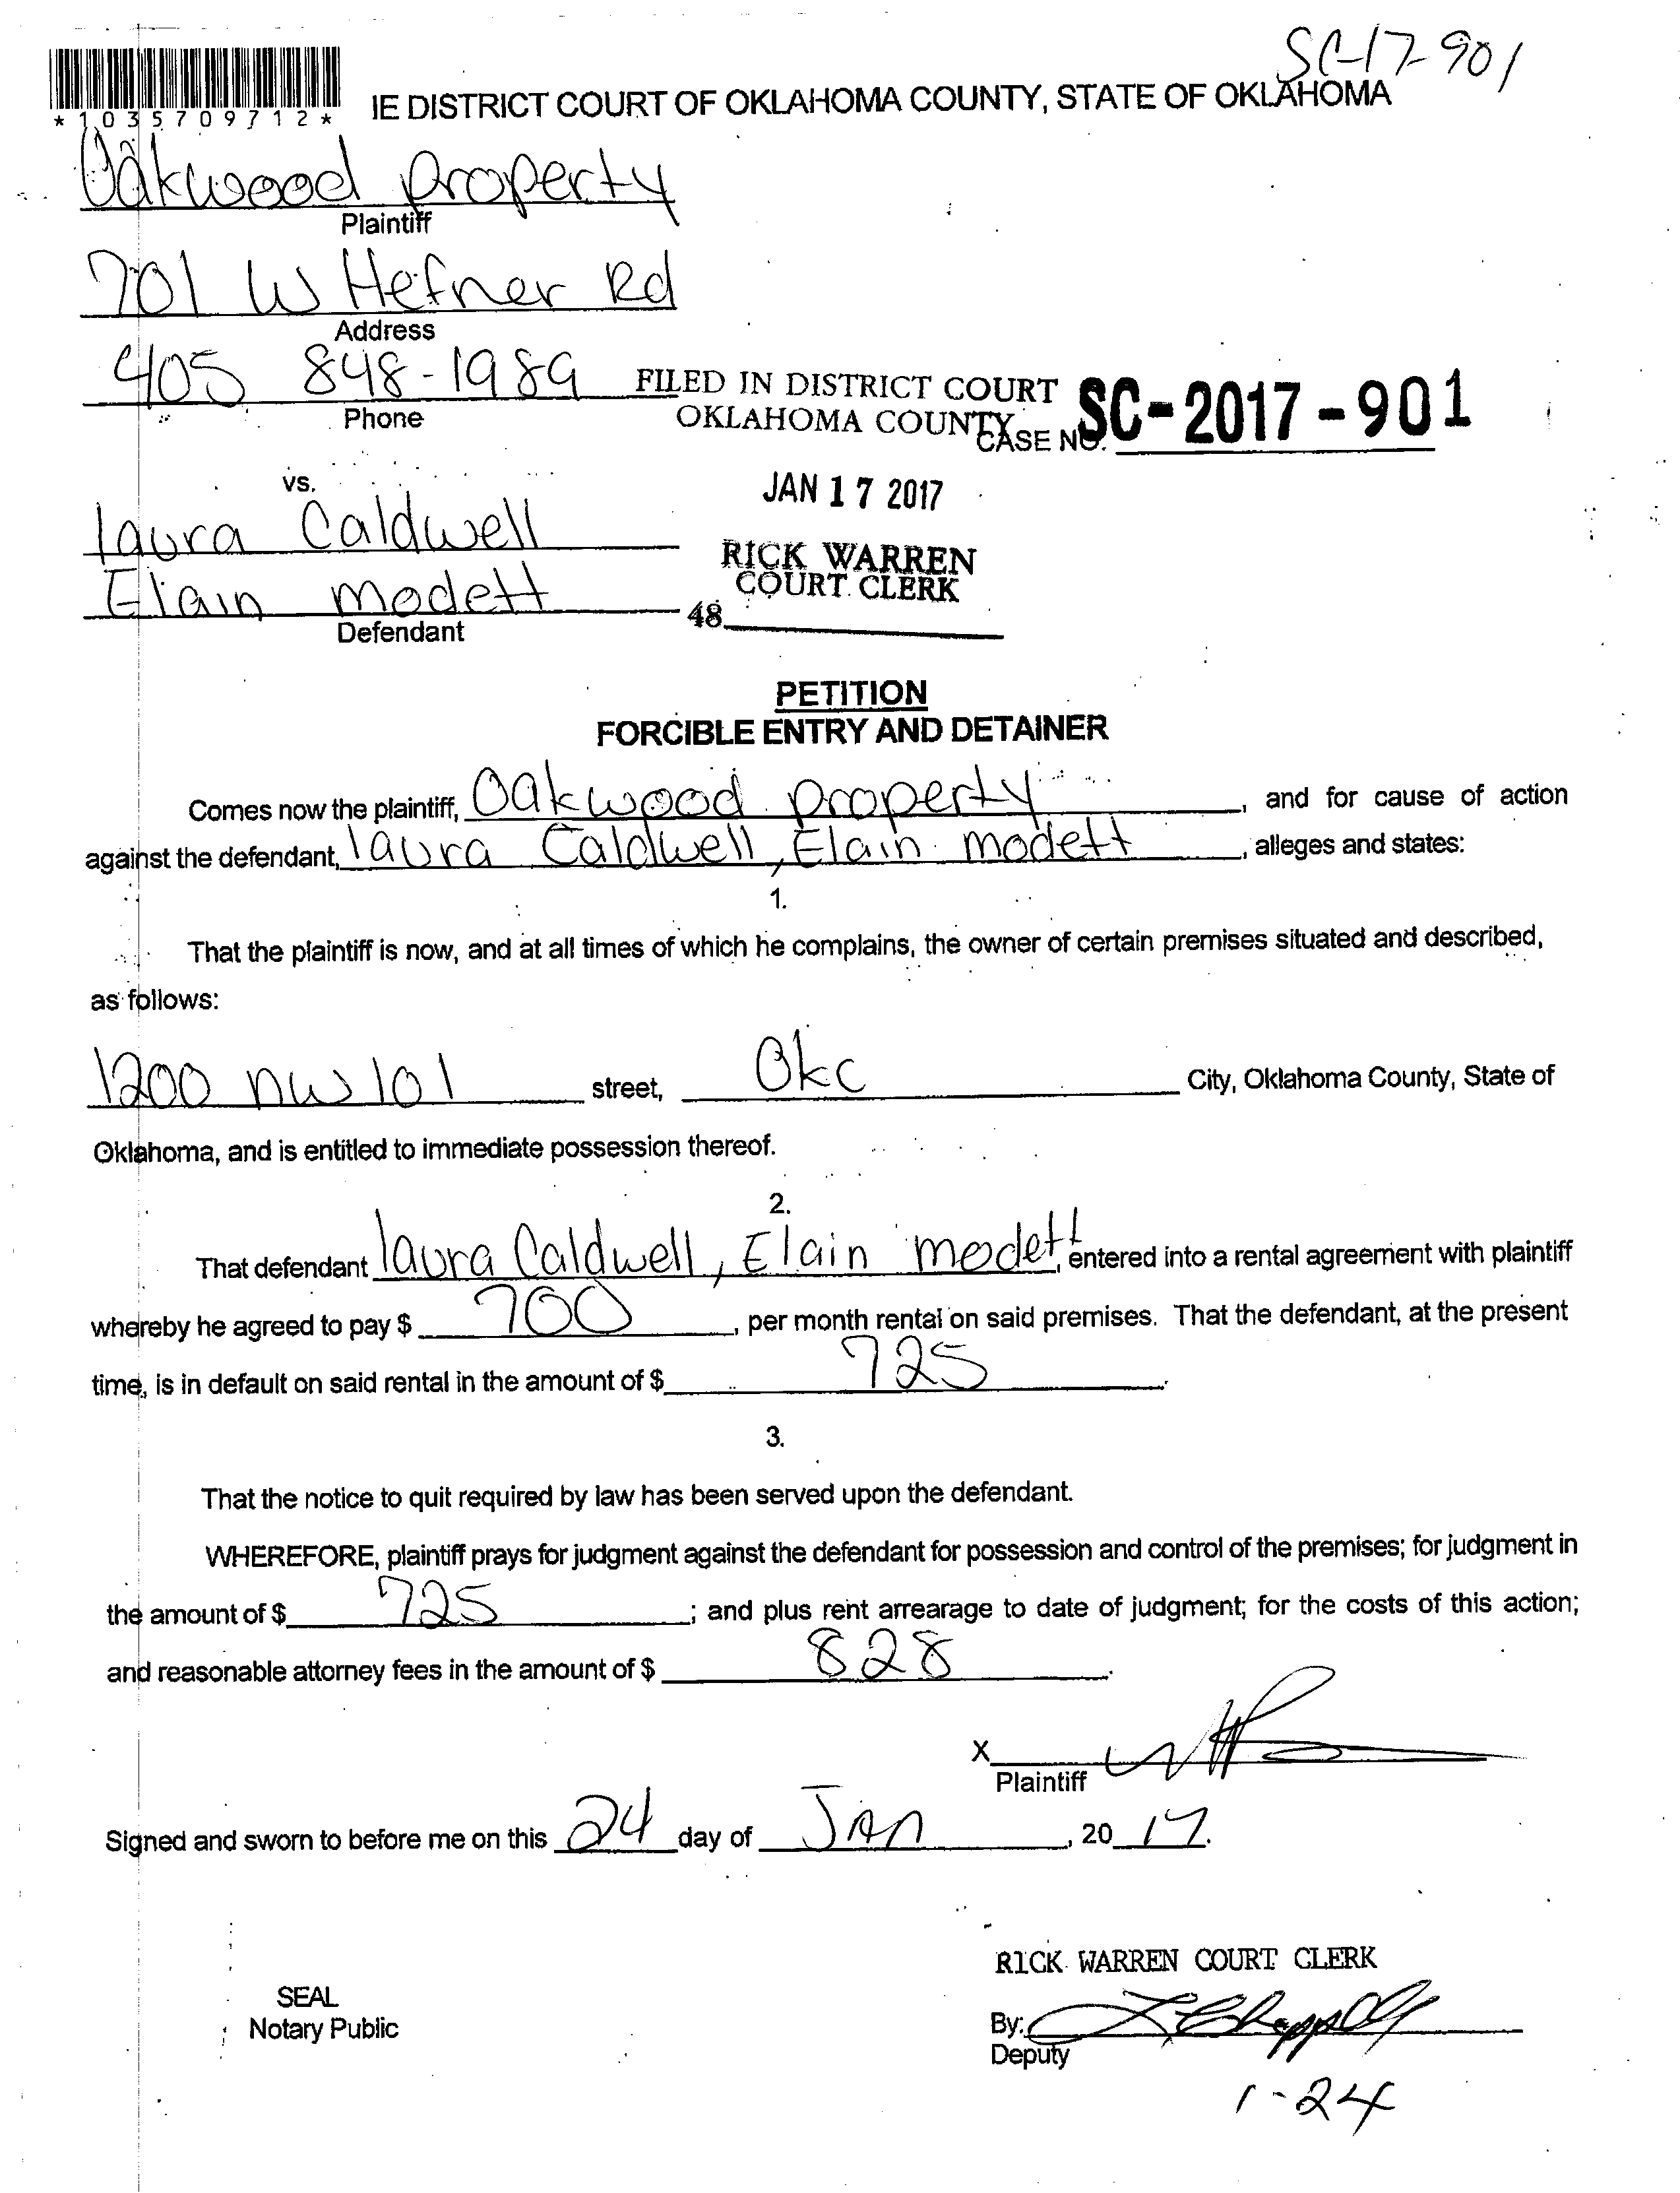 SC-17-901
*1035709712*
IE DISTRICT COURT OF OKLAHOMA COUNTY, STATE OF OKLAHOMA
Oakwood property
Plaintiff
701 W Hefner Rd
Address
405 848-1989
Phone
FILED IN DISTRICT COURT
OKLAHOMA COUNTY
CASE NO. SC-2017-901
vs.
JAN 17 2017
laura Caldwell
Elain modett
Defendant
RICK WARREN
COURT CLERK
48
PETITION
FORCIBLE ENTRY AND DETAINER
Comes now the plaintiff, Oakwood property, and for cause of action
against the defendant, laura Caldwell, Elain modett, alleges and states:
1.
That the plaintiff is now, and at all times of which he complains, the owner of certain premises situated and described,
as follows:
1200 nw 101 street, Okc City, Oklahoma County, State of
Oklahoma, and is entitled to immediate possession thereof.
2.
That defendant laura Caldwell, Elain modett, entered into a rental agreement with plaintiff
whereby he agreed to pay $ 700, per month rental on said premises. That the defendant, at the present
time, is in default on said rental in the amount of $ 725.
3.
That the notice to quit required by law has been served upon the defendant.
WHEREFORE, plaintiff prays for judgment against the defendant for possession and control of the premises; for judgment in
the amount of $ 725; and plus rent arrearage to date of judgment; for the costs of this action;
and reasonable attorney fees in the amount of $ 828.
X
Plaintiff
Signed and sworn to before me on this 24 day of JAn, 20 17.
RICK WARREN COURT CLERK
SEAL
Notary Public
By:
Deputy
1-24